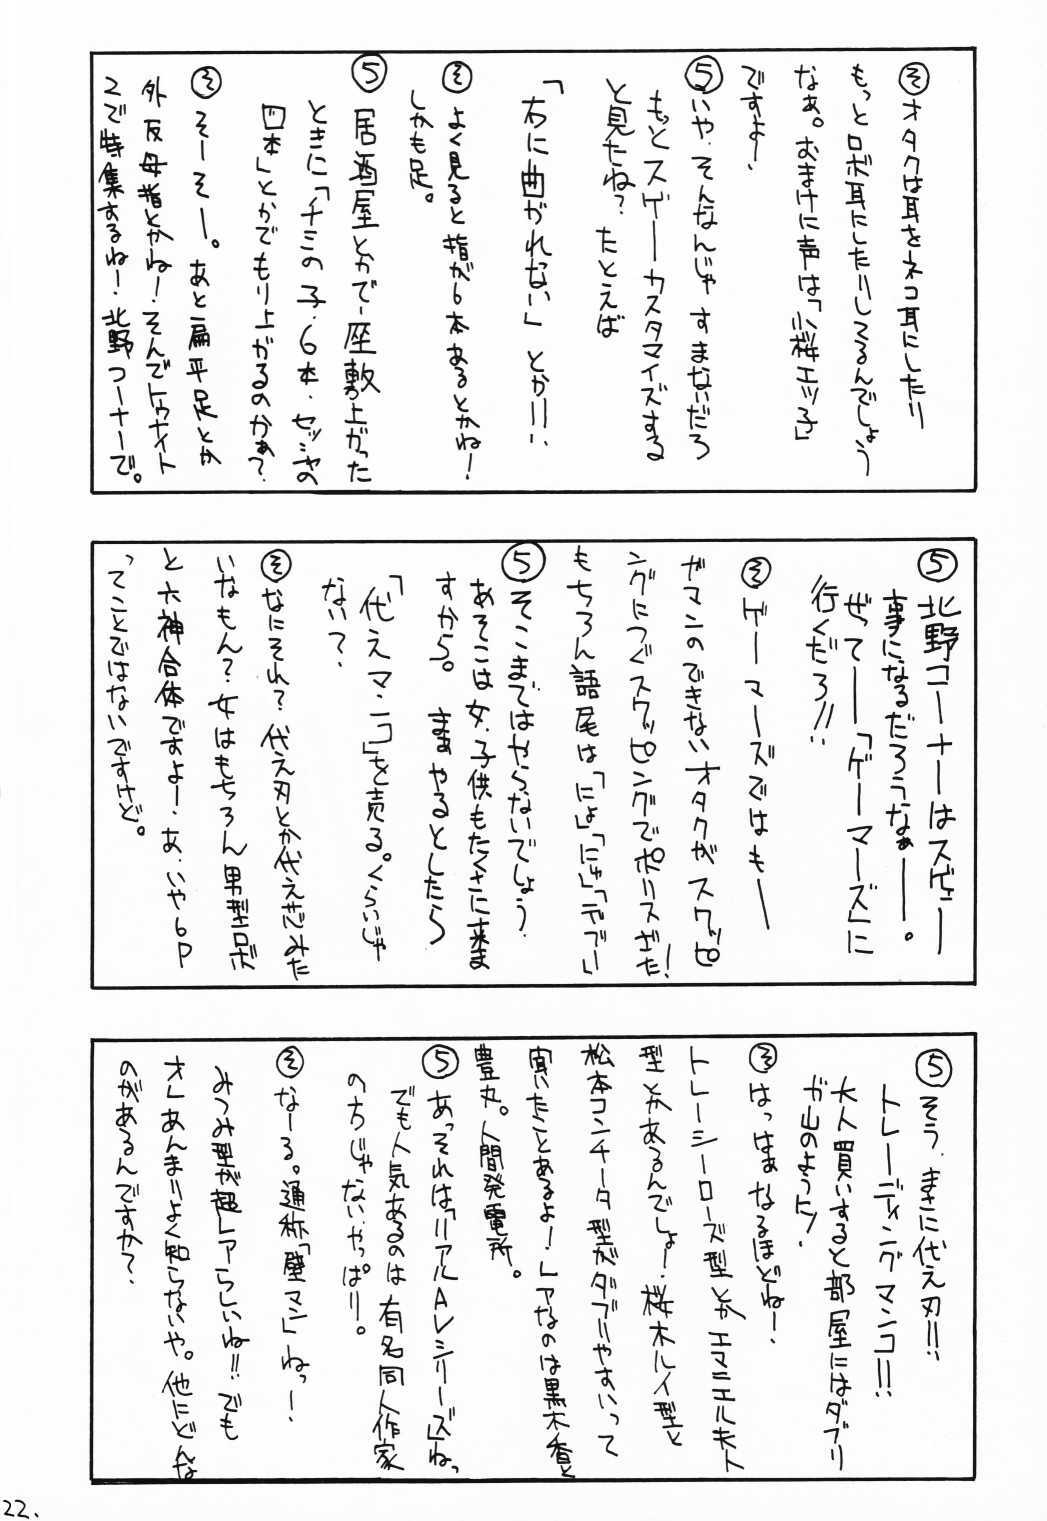 ㋞オタクは耳をネコ耳にしたり
もっとロボ耳にしたりしてるんでしょう
なぁ。おまけに声は「小桜エツ子」
ですよー、
⑤いや、そんなんじゃすまないだろ
もっとスゲーカスタマイズする
と見たね?たとえば
「右に曲がれない」とか!!、
㋞よく見ると指が6本あるとかね!
しかも足。
⑤居酒屋とかで座敷上がった
ときに「チミの子、6本、セッシャの
四本」とかでもり上がるのかぁ?
㋞そーそー。あと扁平足とか
外反母指とかね!そんでトゥナイト
2で特集するね!北野コーナーで。
⑤北野コーナーはスゲェー
事になるだろうなぁー。
ぜってー「ゲーマーズ」に
行くだろ!!
㋞ゲーマーズではもー
ガマンのできないオタクがスワッピ
ングにつぐスワッピングでポリスざた!
もちろん語尾は「にょ」「にゅ」「デブー」
⑤そこまではやらないでしょう、
あそこは女、子供もたくさに来ま
すから。まぁやるとしたら
「代えマンコ」を売る。くらいじゃ
ない?
㋞なにそれ?代え刃とか代え芯みた
いなもん?女はもちろん男型ロボ
と六神合体ですよー、あ、いや6P
ってことではないですけど。
⑤そう、まさに代え刃!!
トレーディングマンコ!!
大人買いすると部屋にはダブリ
が山のように!
㋞はっはぁなるほどねー、
トレーシーローズ型とかエマニエル夫人
型とかあるんでしょー、桜木ルイ型と
松本コンチータ型がダブりやすいって
聞いたことあるよー!レアなのは黒木香と
豊丸。人間発電所。
⑤あっそれは「リアルAVシリーズ」ねっ
でも人気あるのは有名同人作家
の方じゃない、やっぱり。
㋞なーる。通称「壁マン」ねっー、
みつみ型が超レアらしいね!!でも
オレあんまりよく知らないや。他にどんな
のがあるんですか?
22.